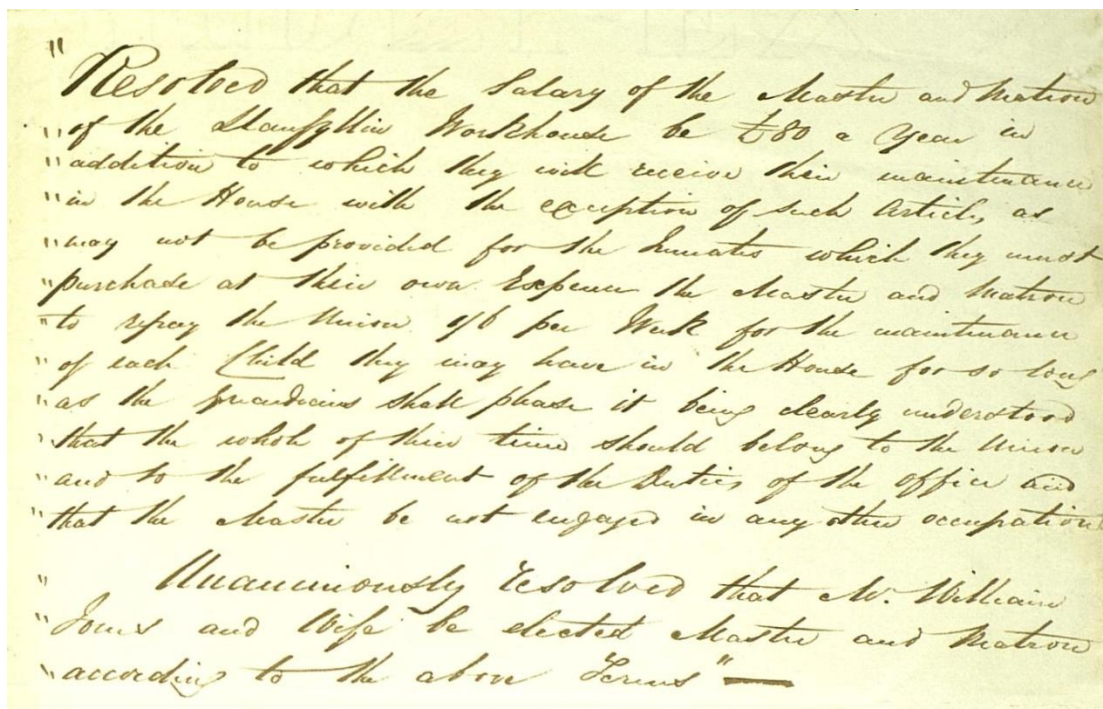 "Resolved that the Salary of the Master and Matron
"of the Llanfyllin Workhouse be £80 a Year in
"addition to which they will receive their maintenance
"in the House with the exception of such Articles as
"may not be provided for the Inmates which they must
purchase at their own Expence the Master and Matron
"to repay the Union 1/6 per Week for the maintenance
"of each Child they may have in the House for so long
"as the Guardians shall please it being clearly understood
"that the whole of their time should belong to the Union
"and to the fulfillment of the Duties of the office and
"that the Master be not engaged in any other occupation
" Unanimously resolved that Mr. William
"Jones and Wife be elected Master and Matron
"according to the above Terms" —